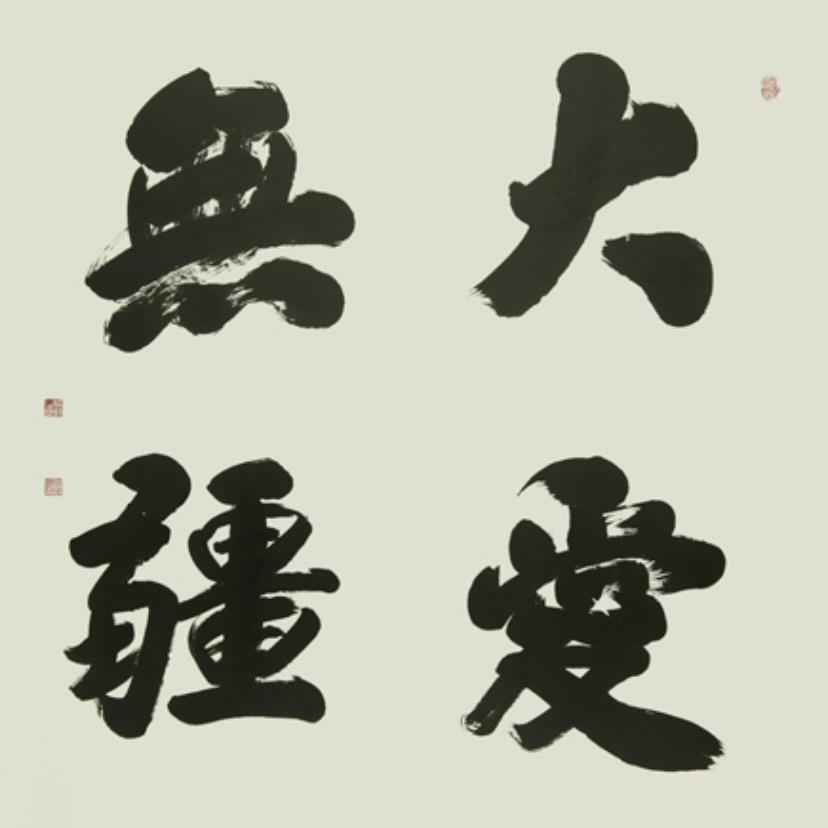 大愛
無疆